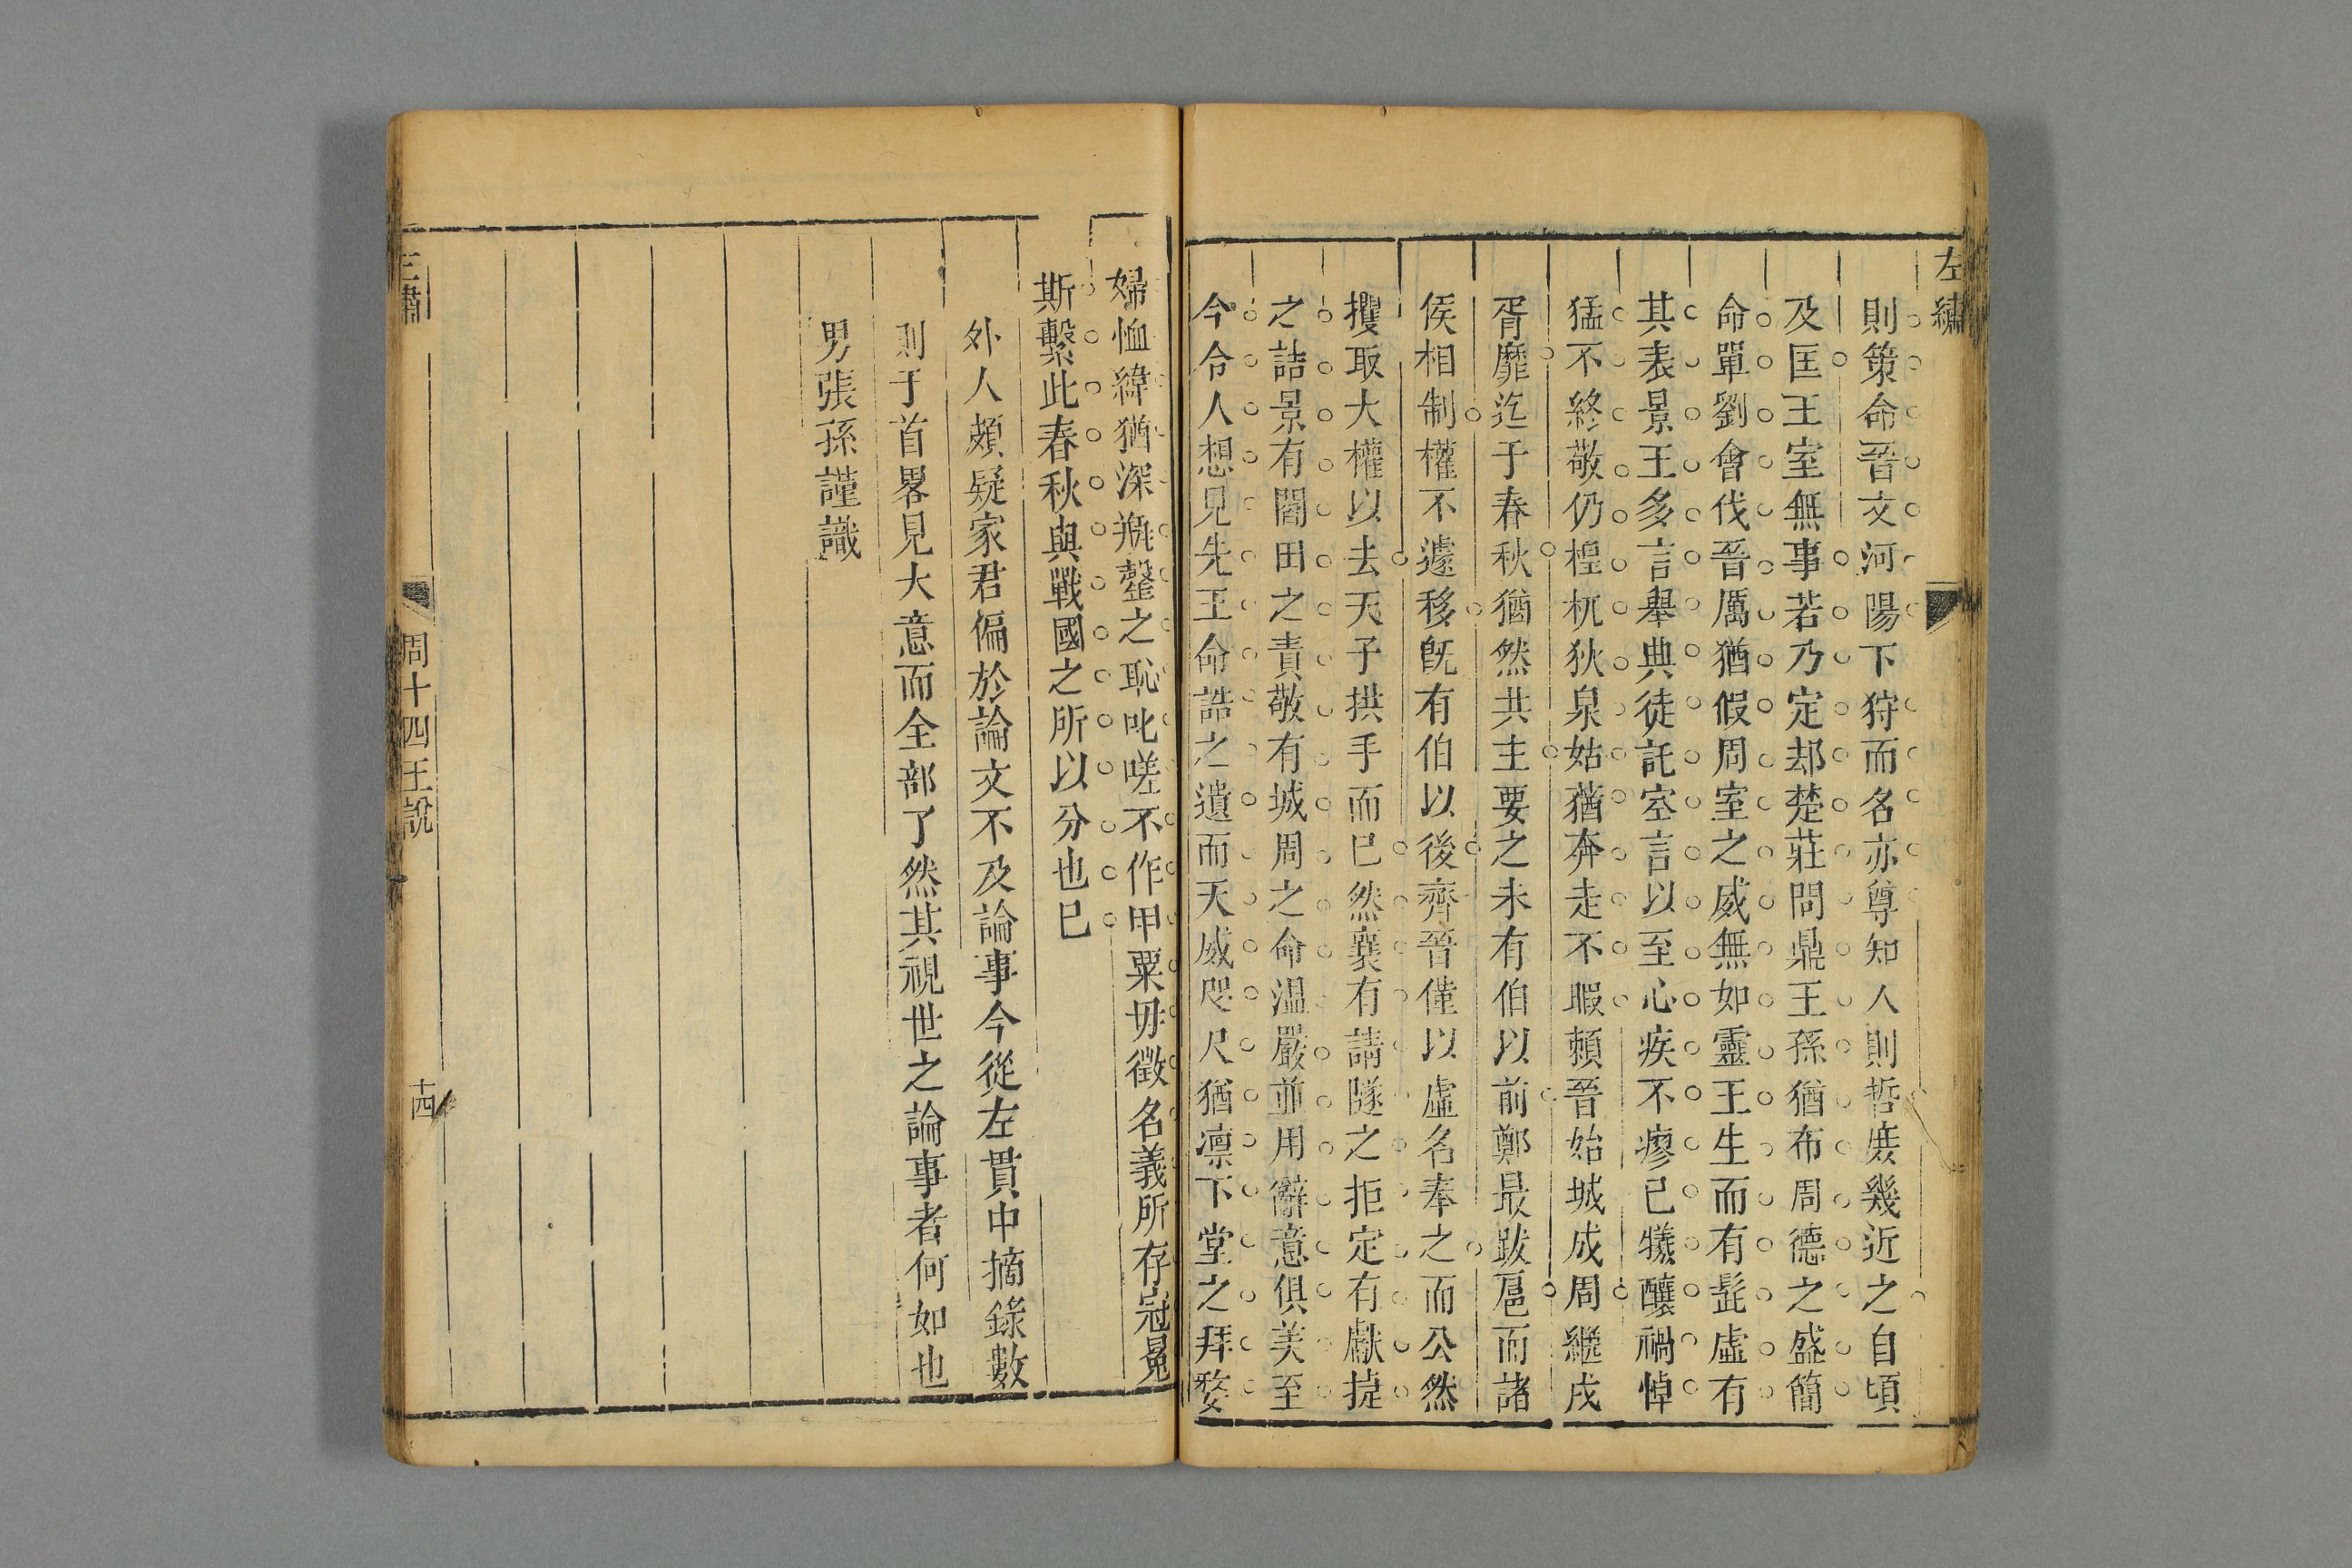 左繡
則策命晉文河陽下狩而名亦尊知人則哲庶幾近之自頃
及匡王室無事若乃定郟楚莊問鼎王孫猶布周德之盛簡
命單劉會伐晉厲猶假周室之威無如靈王生而有髭虛有
其表景王多言舉典徒託空言以至心疾不瘳已犧釀禍悼
猛不終敬仍梡杌狄泉姑蕕奔走不暇賴晉始城成周繼戌
胥靡迄于春秋猶然共主要之未有伯以前鄭最跋扈而諸
侯相制權不遽移既有伯以後齊晉僅以虛名奉之而公然
攫取大權以去天子拱手而已然襄有請隧之拒定有獻捷
之詰景有閻田之責敬有城周之命溫嚴並用辭意俱美至
今令人想見先王命誥之遺而天威咫尺猶凛下堂之拜嫠
婦恤緯猶深瓶罄之恥叱嗟不作甲粟毋徵名義所存冠冕
斯繫此春秋與戰國之所以分也已
外人頗疑家君偏於論文不及論事今從左貫中摘錄數
則于首畧見大意而全部了然其視世之論事者何如也
男張孫謹識
周十四王說
十四